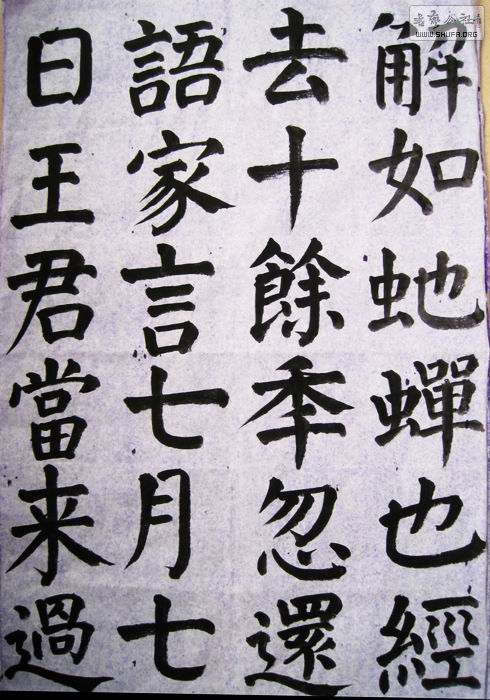 解如虵蟬也經
去十餘秊忽還
語家言七月七
日王君當来過
WWW.SHUFA.ORG